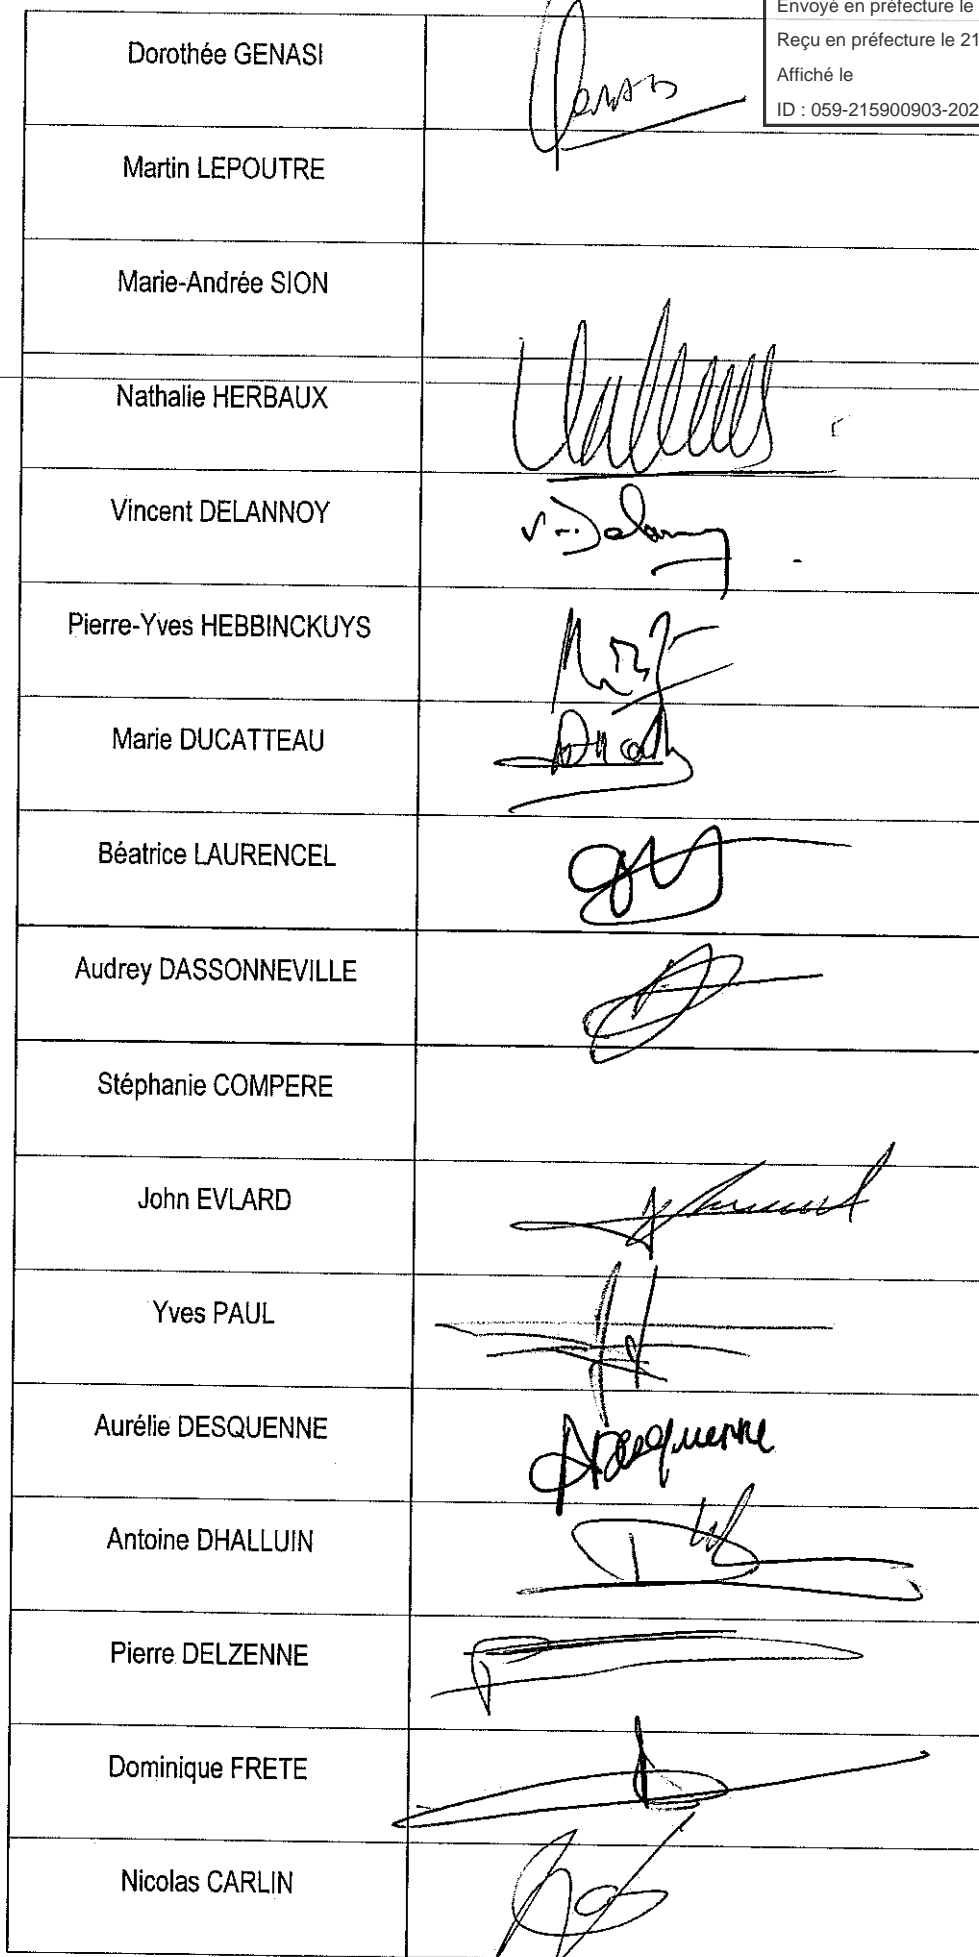 Envoyé en préfecture le
Reçu en préfecture le 21
Affiché le
ID : 059-215900903-202
Dorothée GENASI
Martin LEPOUTRE
Marie-Andrée SION
Nathalie HERBAUX
Vincent DELANNOY
V. Delannoy
Pierre-Yves HEBBINCKUYS
Marie DUCATTEAU
Béatrice LAURENCEL
Audrey DASSONNEVILLE
Stéphanie COMPERE
John EVLARD
Yves PAUL
Aurélie DESQUENNE
ADesquenne
Antoine DHALLUIN
Pierre DELZENNE
Dominique FRETE
Nicolas CARLIN